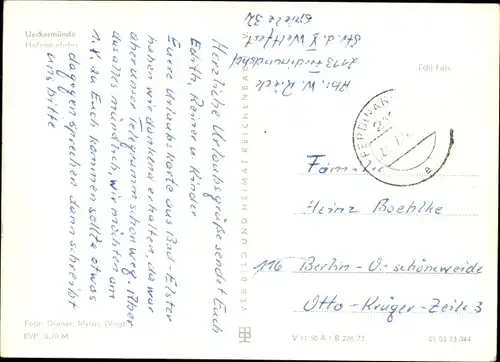 Ueckermünde
Herzliche Urlaubsgrüße sendet Euch
Edith, Reiner u. Kinder
Euere Urlaubskarte aus Bad-Elster
haben wir dankend erhalten, da war
aber unser Telegramm schon weg. Aber
das alles mündlich, wir möchten am
1.X. zu Euch kommen sollte etwas
dagegen sprechen dann schreibt
uns bitte
Foto: Diener, Mylau (Vogtl)
EVP 0,20 M
VEB BILD UND HEIMAT REICHENBA
Abs. W.
2173 Ferdinandshof
Str. d. X Weltfest
spiele 32
Echt Foto
FERDINAN
a
Familie
Heinz Boehlke
116 Berlin - O.-schönweide
Otto-Krüger-Zeile 3
V 11 50 A 1 B 226/73
01 03 13 044